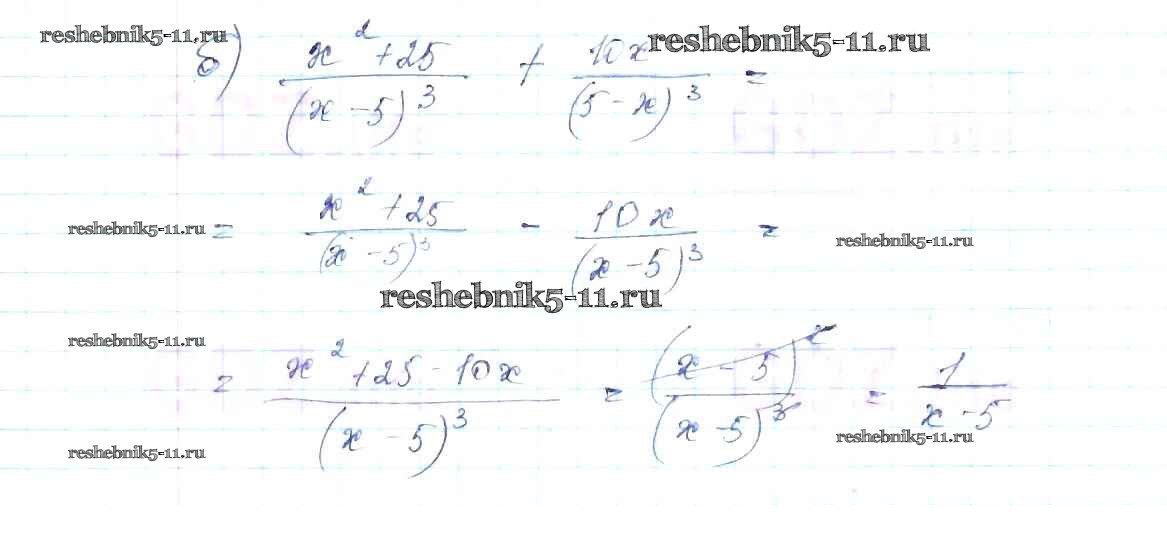 reshebnik5-11.ru
reshebnik5-11.ru
б) (x² + 25)/(x - 5)³ + 10x/(5 - x)³ =
reshebnik5-11.ru
= (x² + 25)/(x - 5)³ - 10x/(x - 5)³ =
reshebnik5-11.ru
reshebnik5-11.ru
reshebnik5-11.ru
= (x² + 25 - 10x)/(x - 5)³ = (x - 5)²/(x - 5)³ = 1/(x - 5)
reshebnik5-11.ru
reshebnik5-11.ru